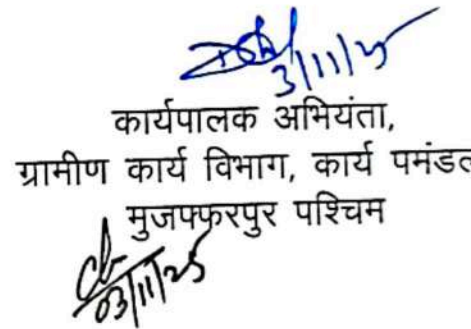 3/11/25
कार्यपालक अभियंता,
ग्रामीण कार्य विभाग, कार्य पमंडल
मुजफ्फरपुर पश्चिम
03/11/25